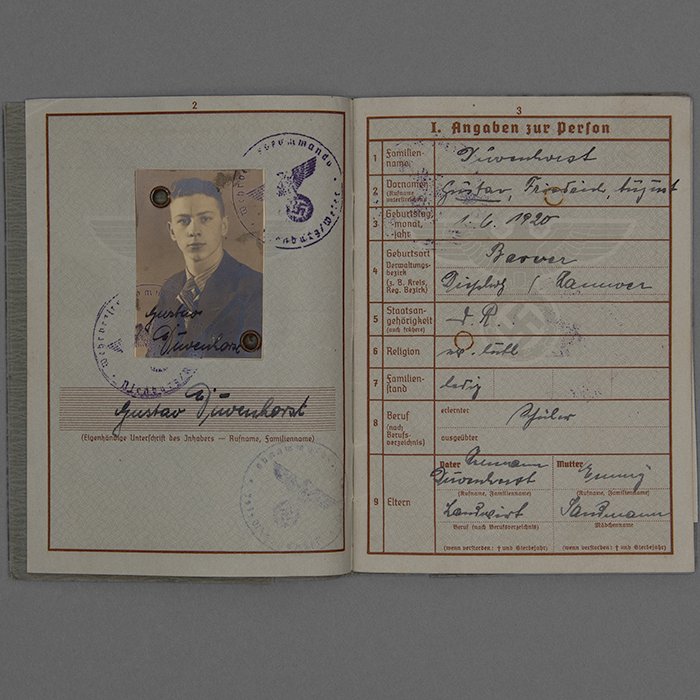 2
Gustav
Düvenhorst
Gustav Düvenhorst
(Eigenhändige Unterschrift des Inhabers — Rufname, Familienname)
3
I. Angaben zur Person
1 Familien-
name
Düvenhorst
2 Vornamen
(Rufname
unterstreichen)
Gustav, Friedrich, August
3 Geburtstag,
-monat,
-jahr
1. 6. 1920
4 Geburtsort
Barver
Verwaltungs-
bezirk
(z. B. Kreis,
Reg. Bezirk)
Diepholz / Hannover
5 Staatsan-
gehörigkeit
(auch frühere)
D. R.
6 Religion
ev. luth
7 Familien-
stand
ledig
8 Beruf
(nach
Berufs-
verzeichnis)
erlernter
Schüler
ausgeübter
9 Eltern
Vater
Hermann
Düvenhorst
(Rufname, Familienname)
Landwirt
Beruf (nach Berufsverzeichnis)
(wenn verstorben: † und Sterbejahr)
Mutter
(Rufname, Familienname)
Sandmann
Mädchenname
(wenn verstorben: † und Sterbejahr)